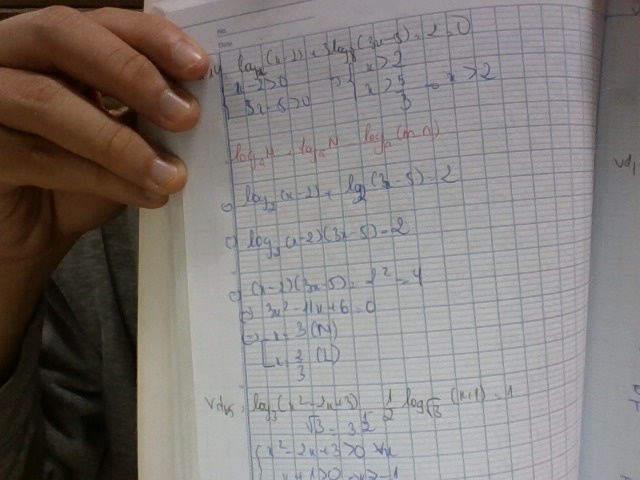 No.
Date
log₂(x-2) + 3log₈(3x-5) - 2 = 0
{ x-2>0 → { x>2
3x-5>0 x>5/3 → x>2
logₐM + logₐN = logₐ(m.n)
⇔ log₂(x-2) + log₂(3x-5) = 2
⇔ log₂(x-2)(3x-5) = 2
⇔ (x-2)(3x-5) = 2² = 4
⇔ 3x² - 11x + 6 = 0
⇔ [ x = 3 (N)
x = 2/3 (L)
log₃(x² - 2x + 3) 1/2 log√3 (x+1) = 1
√3 = 3^1/2
{ x² - 2x + 3 > 0 ∀x
x + 1 > 0 → x > -1